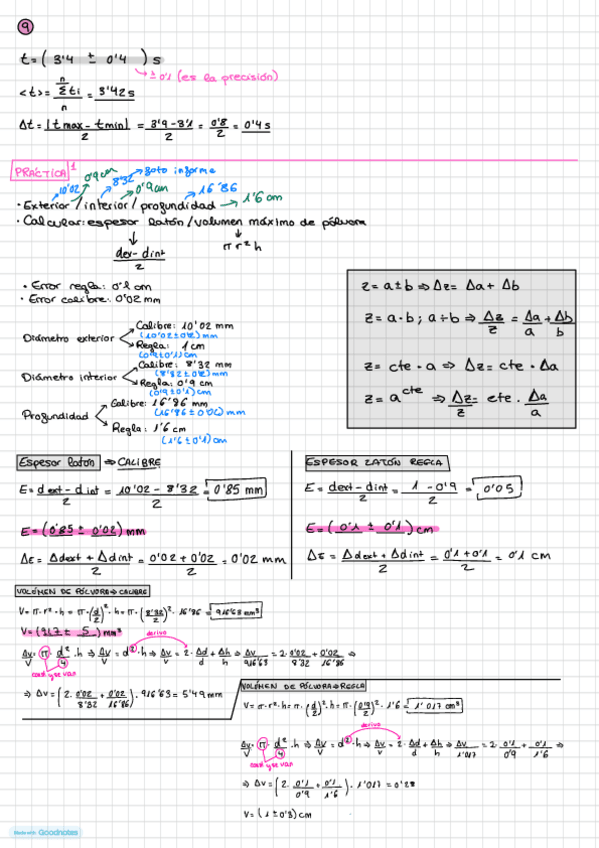 9
t = ( 3'4 ± 0'4 ) s
± 0'1 (es la precisión)
<t> = n Σ ti / n = 3'42 s
Δt = |t max - t min| / 2 = 3'9 - 3'1 / 2 = 0'8 / 2 = 0'4 s
PRÁCTICA 1
10'02 0'9 cm 8'32 foto informe 0'9 cm 16'86
• Exterior / interior / profundidad → 1'6 cm
• Calcular: espesor latón / volumen máximo de pólvora
dex - dint / 2
π r² h
• Error regla: 0'1 cm
• Error calibre: 0'02 mm
Diámetro exterior
Calibre: 10'02 mm
(10'02 ± 0'02) mm
Regla: 1 cm
(0'9 ± 0'1) cm
Diámetro interior
Calibre: 8'32 mm
(8'32 ± 0'02) mm
Regla: 0'9 cm
(0'9 ± 0'1) cm
Profundidad
Calibre: 16'86 mm
(16'86 ± 0'02) mm
Regla: 1'6 cm
(1'6 ± 0'1) cm
z = a ± b ⇒ Δz = Δa + Δb
z = a · b ; a ÷ b ⇒ Δz/z = Δa/a + Δb/b
z = cte · a ⇒ Δz = cte · Δa
z = a^cte ⇒ Δz/z = cte · Δa/a
Espesor latón ⇒ CALIBRE
E = dext - dint / 2 = 10'02 - 8'32 / 2 = 0'85 mm
E = (0'85 ± 0'02) mm
ΔE = Δdext + Δdint / 2 = 0'02 + 0'02 / 2 = 0'02 mm
ESPESOR LATÓN REGLA
E = dext - dint / 2 = 1 - 0'9 / 2 = 0'05
E = ( 0'1 ± 0'1 ) cm
ΔE = Δdext + Δdint / 2 = 0'1 + 0'1 / 2 = 0'1 cm
VOLÚMEN DE PÓLVORA ⇒ CALIBRE
V = π · r² · h = π · (d/2)² · h = π · (8'32/2)² · 16'86 = 916'63 mm³
V = (917 ± 5) mm³
derivo
ΔV/V = π · d²/4 · h ⇒ ΔV/V = d² · h ⇒ ΔV/V = 2 · Δd/d + Δh/h ⇒ ΔV/916'63 = 2 · 0'02/8'32 + 0'02/16'86 ⇒
const y se van
⇒ ΔV = (2 · 0'02/8'32 + 0'02/16'86) · 916'63 = 5'49 mm
VOLÚMEN DE PÓLVORA ⇒ REGLA
V = π · r² · h = π · (d/2)² · h = π · (0'9/2)² · 1'6 = 1'017 cm³
derivo
ΔV/V = π · d²/4 · h ⇒ ΔV/V = d² · h ⇒ ΔV/V = 2 · Δd/d + Δh/h ⇒ ΔV/1'017 = 2 · 0'1/0'9 + 0'1/1'6 ⇒
const y se van
⇒ ΔV = (2 · 0'1/0'9 + 0'1/1'6) · 1'017 = 0'28
V = (1 ± 0'3) cm
Made with Goodnotes